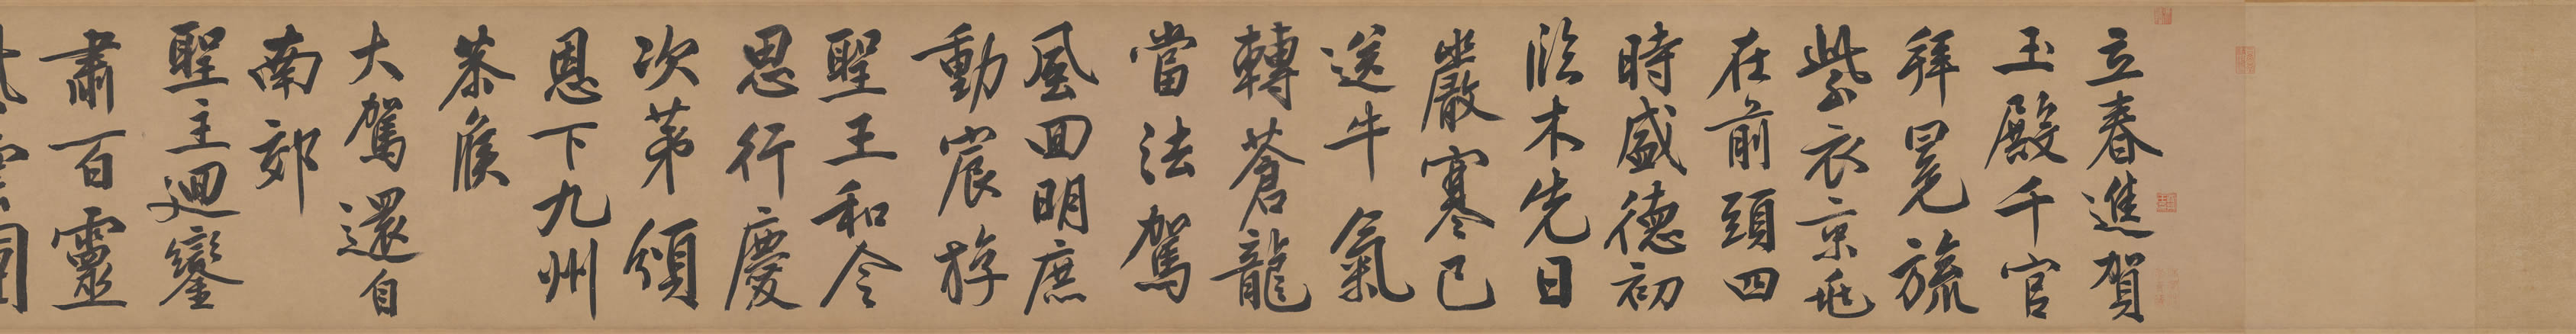 立春進賀
玉殿千官
拜冕旒
紫衣京兆
在前頭四
時盛德初
臨木先日
嚴寒已
送牛氣
轉蒼龍
當法駕
風回明庶
動宸游
聖王和令
思行慶
次第頒
恩下九州
恭候
大駕還自
南郊
聖主迴鑾
肅百靈